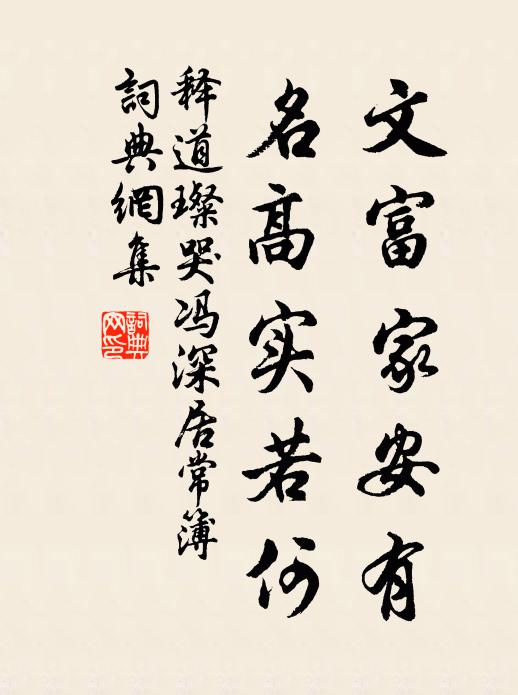 文富家安有
名高实若何
释道璨哭冯深居常簿
词典網集
詞典网印